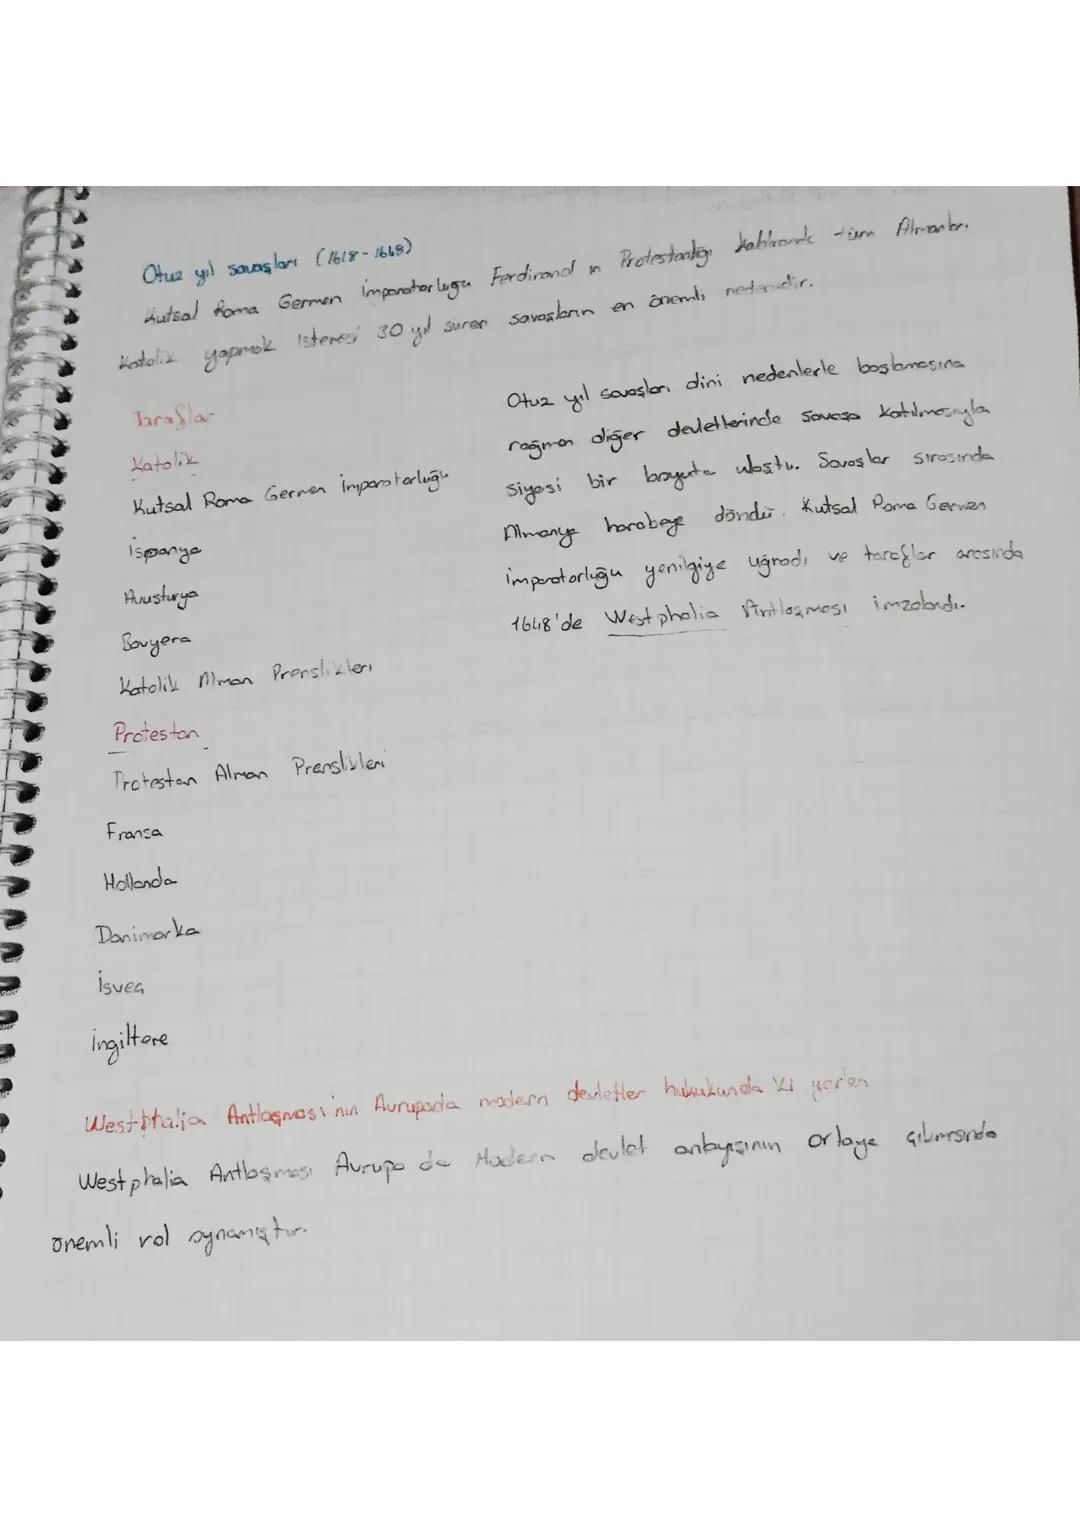 Otuz yıl savaşları (1618-1648)
Kutsal Roma Germen İmparatorluğu Ferdinand ın Protestanlığı kaldırarak tüm Almanları
Katolik yapmak istemesi 30 yıl süren savaşların en önemli nedenidir.
Taraflar
Katolik
Kutsal Roma Germen İmparatorluğu
İspanya
Avusturya
Bavyera
Katolik Alman Prenslikleri
Protestan
Protestan Alman Prenslikleri
Fransa
Hollanda
Danimarka
İsveç
İngiltere
Otuz yıl savaşları dini nedenlerle başlamasına
rağmen diğer devletlerinde savaşa katılmasıyla
siyasi bir boyuta ulaştı. Savaşlar sırasında
Almanya harabeye döndü. Kutsal Roma Germen
İmparatorluğu yenilgiye uğradı ve taraflar arasında
1648'de Westphalia Antlaşması imzalandı.
Westphalia Antlaşması'nın Avrupada modern devletler hukukunda ki yerleri
Westphalia Antlaşması Avrupa da Modern devlet anlayışının ortaya çıkmasında
önemli rol oynamıştır.